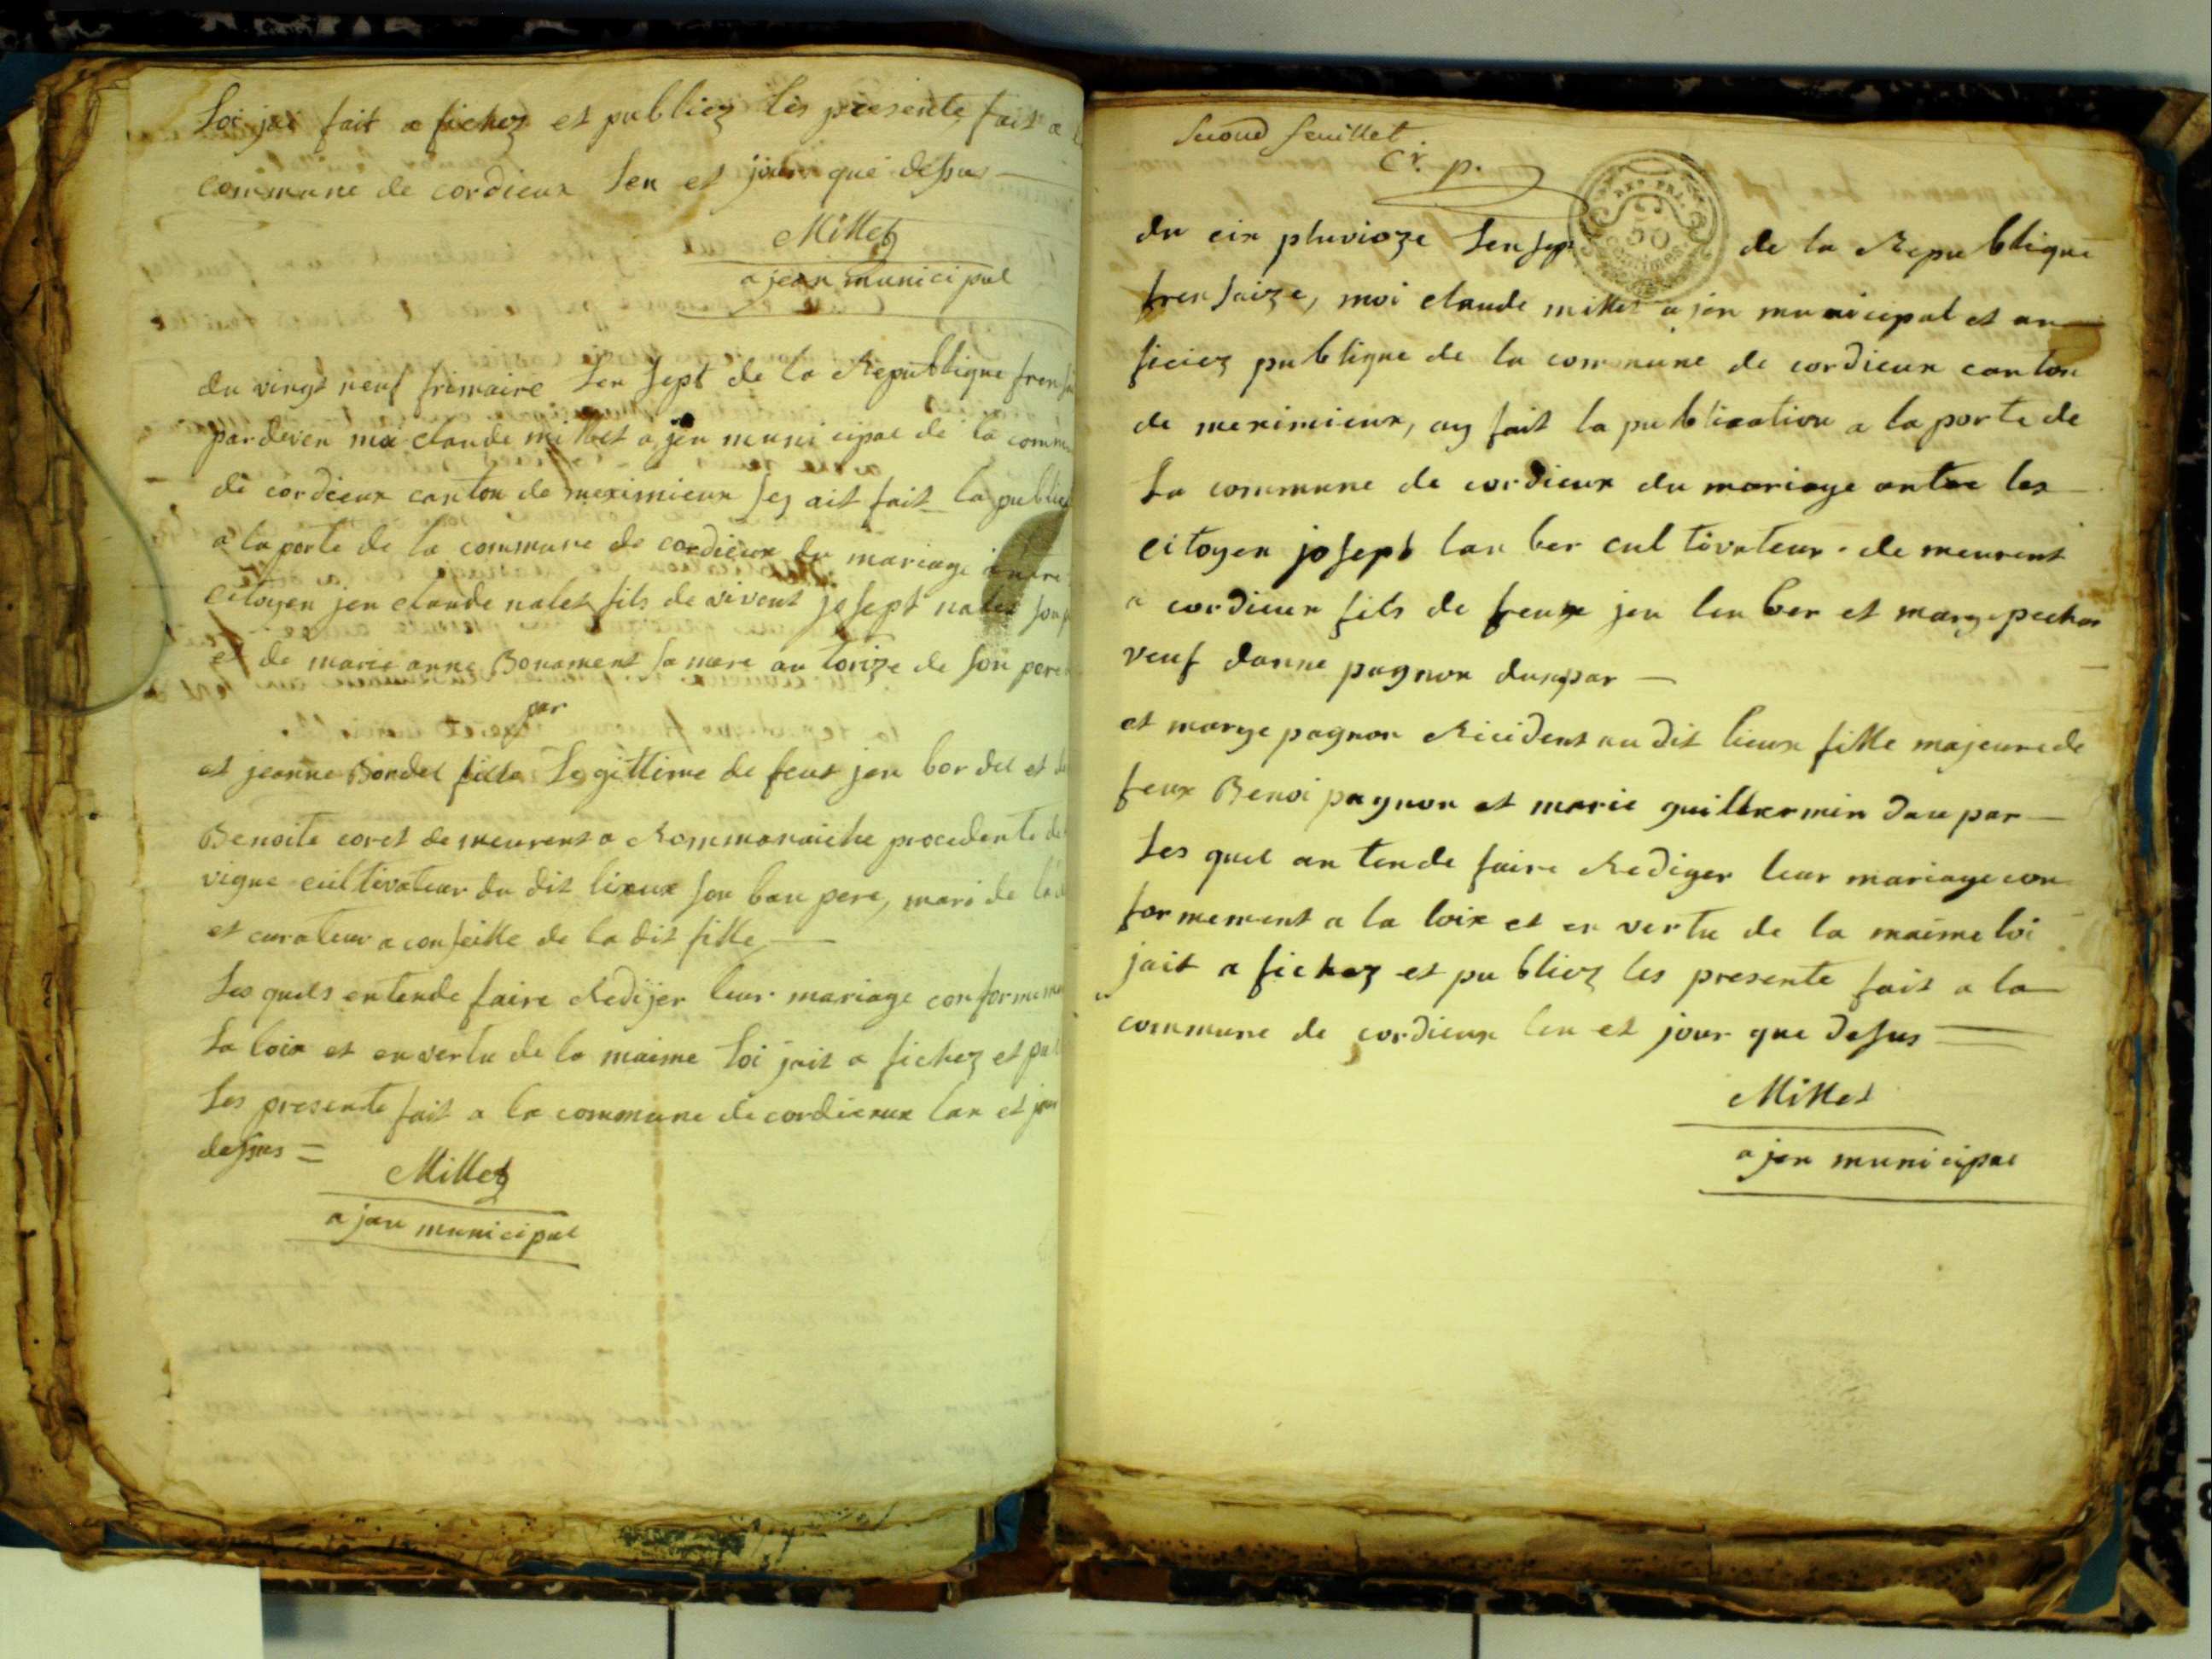 Loi jai fait a fichez et publiez les presente fait a
commune de cordieux Len et jour que dessus
Millet
ajean municipal
du vingt neuf frimaire Len Sept de la Republique
pardeven moi claude millet a jen municipal de la
de cordieux canton de meximieux Sez ait fait la
a la porte de la commune de cordieux du mariage
citoyen jen claude nalet fils de vivent joSept nalet
et de marie anne Bonament Sa mere au torize de Son pere
par
et jeanne Bordel fille Legittime de feut jen bordel et
Benoite coret de meurent a Rommanaiche procedente
vigne cultivateur du dit lieux Son bau pere, mari de
et curateur a conseille de la dit fille
Les quels entende faire Redijer leur mariage
La loix et en vertu de la maime Loi jait a fichez et
Les presente fait a la commune de cordieux lan et
dessus =
Millet
a jan municipal
Second feuillet
du cix pluvioze Len Sept de la Republique
REP. FRA.
50
centimes
frenSaize, moi claude millet a jen municipal et au
ficiez publique de la commune de cordieux canton
de meximieux, ay fait la publication a la porte de
La commune de cordieux du mariage antre les
citoyen joSept lan ber cul tivateur de meurent
a cordieux fils de freux jen lenber et marge pechou
veuf danne pagnon
et marge pagnon Récident au dit lieux fille majeure de
feux Benoi pagnon et marie guillermin
Les quel an tende faire Rediger leur mariage con
formement a la loix et en vertu de la maime loi
jait a fichez et publiez les presente fait a la
commune de cordieux len et jour que deSus
Millet
a jen municipal